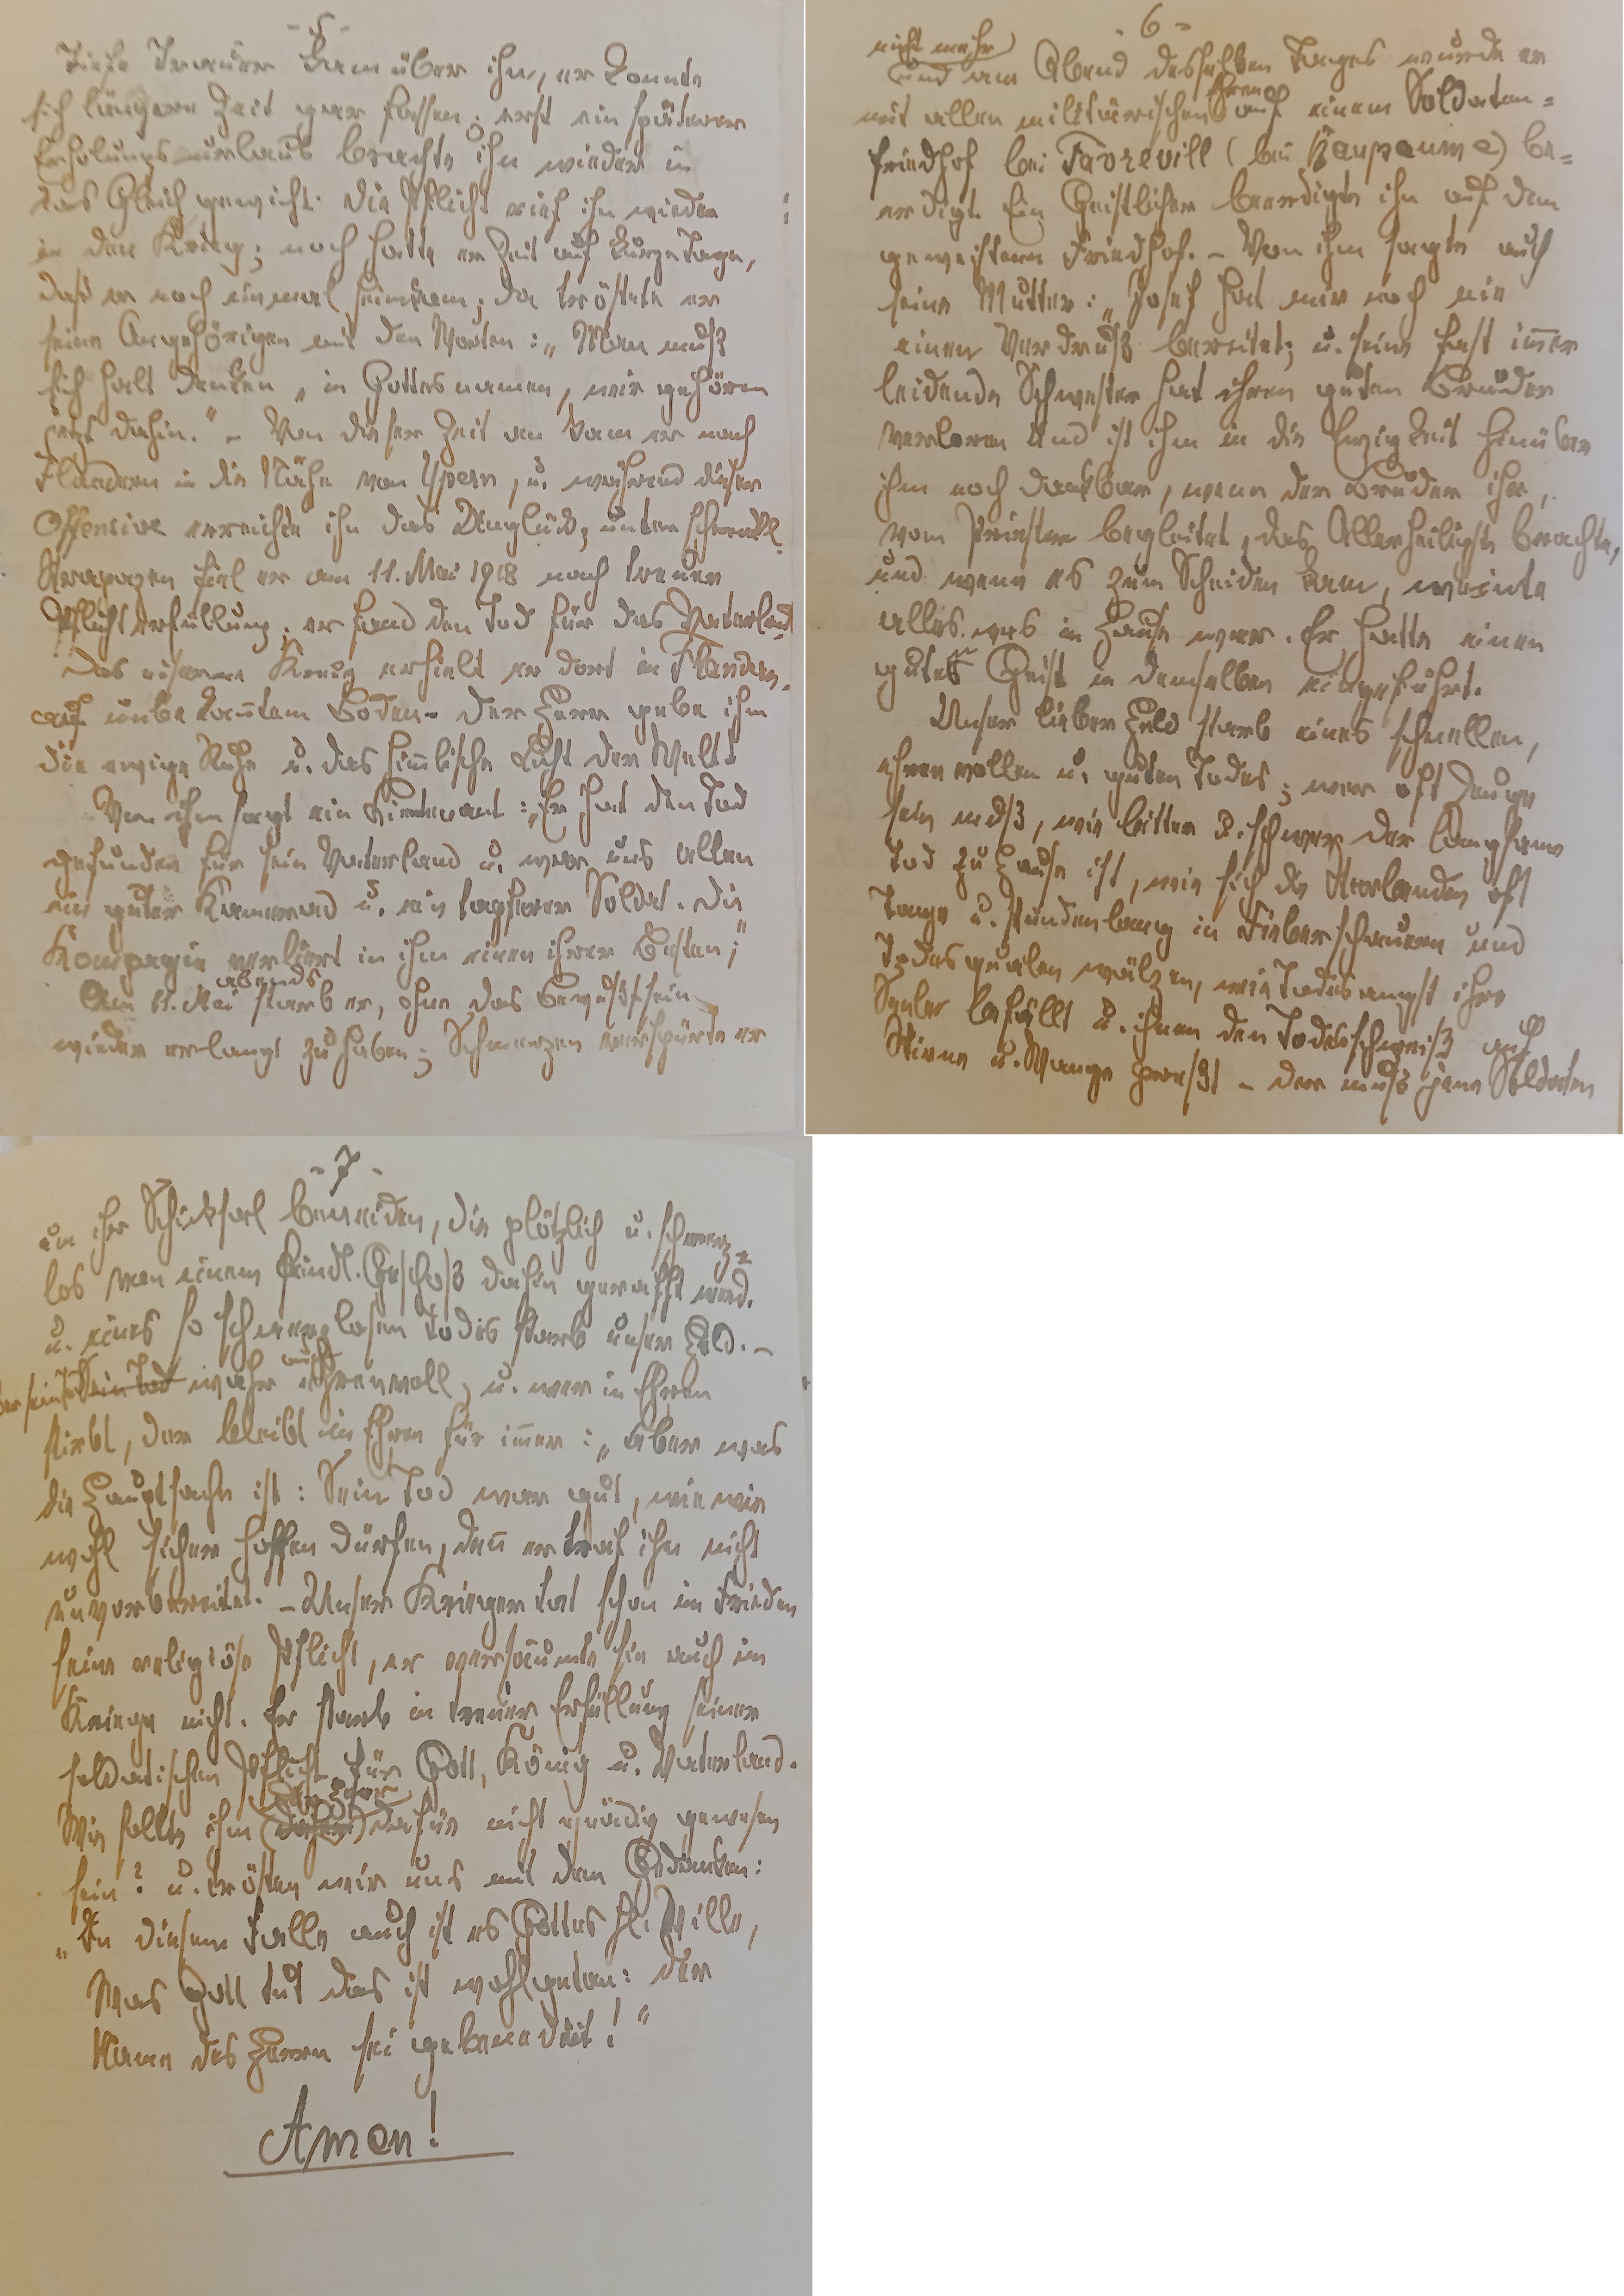 - 5 -
Tiefe Trauer kam über ihn, er konnte
sich längere Zeit gar fassen; erst ein späterer
Erholungsurlaub brachte ihn wieder in
das Gleichgewicht. Die Pflicht rief ihn wieder
in den Krieg; noch hatte er Zeit auf kurze Tage,
daß er noch einmal heimkam; da tröstete er
seine Angehörigen mit den Worten: „Man muß
sich halt denken „in Gottesnamen, wir gehören
jetzt dahin." – Von dieser Zeit an kam er nach
Flandern in die Nähe von Ypern, u. während dieser
Offensive erreichte ihn das Unglück; unter schreckl.
Strapazen fiel er am 11. Mai 1918 nach treuer
Pflichterfüllung; er fand den Tod für das Vaterland
Das eiserne Kreuz erhielt er dort in Flandern,
auf unbekanntem Boden – Der Herr gebe ihm
die ewige Ruhe u. das himmlische Licht der Welt.
Von ihm sagt ein Leutnant: „Er hat den Tod
gefunden für sein Vaterland u. war uns allen
ein guter Kamerad u. ein tapferer Soldat. Die
Kompagie verliert in ihm einen ihrer Besten;"
abends
Am 11. Mai starb er, ohne das Bewußtsein
wieder erlangt zu haben; Schmerzen verspürte er
- 6 -
nicht mehr
und am Abend desselben Tages wurde er
Ehren
mit allen militärischen auf einem Soldaten-
friedhof bei Favrevill (bei Baupaume) be-
erdigt. Ein Geistlicher beerdigte ihn auf dem
geweihten Friedhof. – Von ihm sagte auch
seine Mutter: „Josef hat mir noch nie
einen Verdruß bereitet; u. seine fast immer
leidende Schwester hat ihren guten Bruder
verloren und ist ihm in die Ewigkeit hinüber
ihm noch dankbar, wenn der Bruder ihr,
vom Priester begleitet, das Allerheiligste brachte,
und wenn es zum Scheiden kam, weinte
alles, was im Hause war. Er hatte einen
guten Geist in demselben eingeführt.
Unser lieber Held starb eines schnellen,
ehrenvollen u. guten Todes; wer oft Zeuge
sein muß, wie bitter u. schwer der langsame
Tod zu Hause ist, wie sich die Sterbenden oft
Tage u. stundenlang in Fieberschauern und
Todesqualen wälzen, wie Todesangst ihre
Seele befällt u. ihnen den Todesschweiß auf
Stirne u. Wange preßt – der muß jene Soldaten
- 7 -
um ihr Schicksal beneiden, die plötzlich u. schmerz-
los von einem feindl. Geschoß dahin gerafft werd.
u. eines so schmerzlosen Todes starb unser Held. –
auch
Sein Tod wahr ehrenvoll, u. wer in Ehren
stirbt, der bleibt in Ehren für immer: „aber was
die Hauptsache ist: Sein Tod war gut, wie wir
wohl sicher hoffen dürfen, denn er traf ihn nicht
unvorbereitet. – Unser Krieger tat schon im Frieden
seine religiöse Pflicht, er versäumte sie auch im
Kriege nicht. Er starb in treuer Erfüllung seiner
soldatischen Pflicht für Gott, König u. Vaterland.
der Herr
Wie sollte ihm dafür nicht gnädig gewesen
sein? u. trösten wir uns mit dem Gedanken:
„In diesem Falle auch ist es Gottes hl. Wille,
Was Gott tut das ist wohlgetan: Der
Name des Herrn sei gebenedeit!"
Amen!